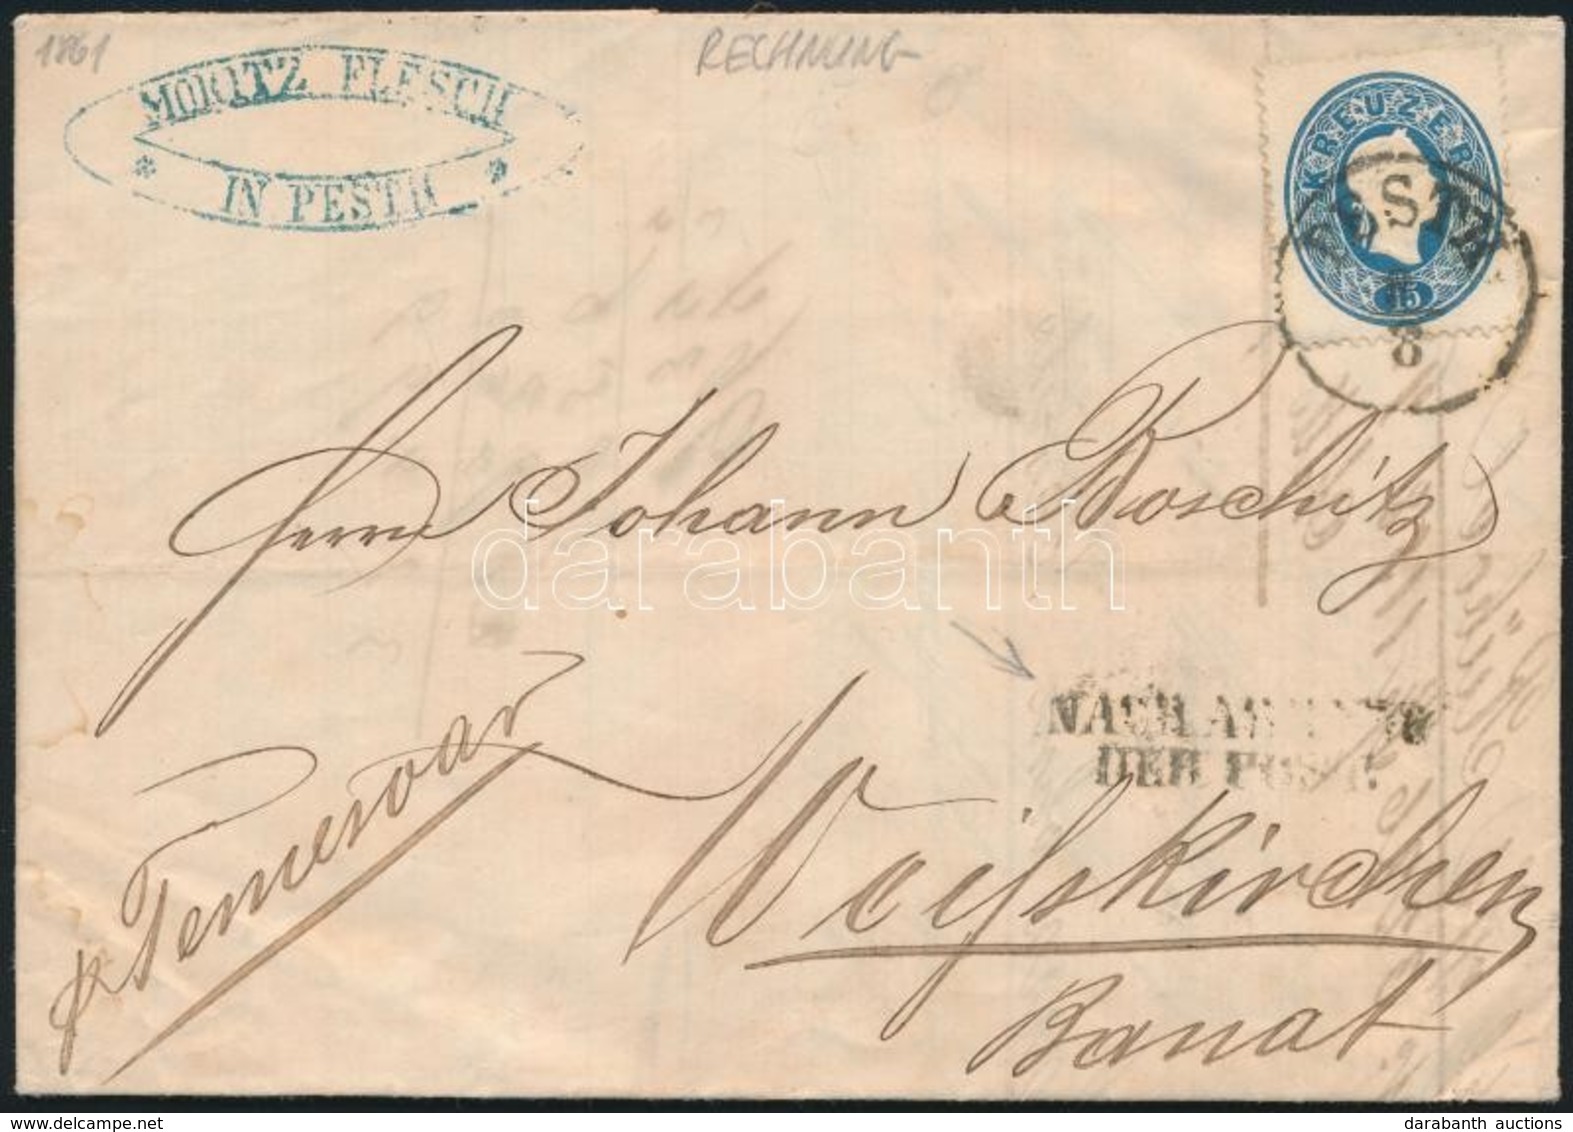 1861
RECHNUNG
MORITZ FLESCH
* IN PESTH *
KREUZER
15
PESTH
8
Herrn Johann Boschitz
darabanth
NACH ABGANG
DER POST.
Weißkirchen
pr Temesvar
Banat
darabanth auctions